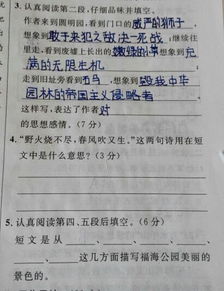 3.认真阅读第二段,仔细品味并填空。
作者来到圆明园,看到门口的威严的狮子,
想象到敢于来犯之敌决一死战;继续往
里走,看到废墟上长出的嫩绿的草想象到充
满的无限生机
走到旧址旁看到石马,想象到毁我中华
园林的帝国主义侵略者
这样写,表达了作者对
的思想感情。(7分)
4.“野火烧不尽,春风吹又生。”这两句诗用在短
文中是什么意思?(3分)
5.认真阅读第四、五段后填空。(6分)
短文是从 、 、 、 、
这几方面描写福海公园美丽的
景色的。